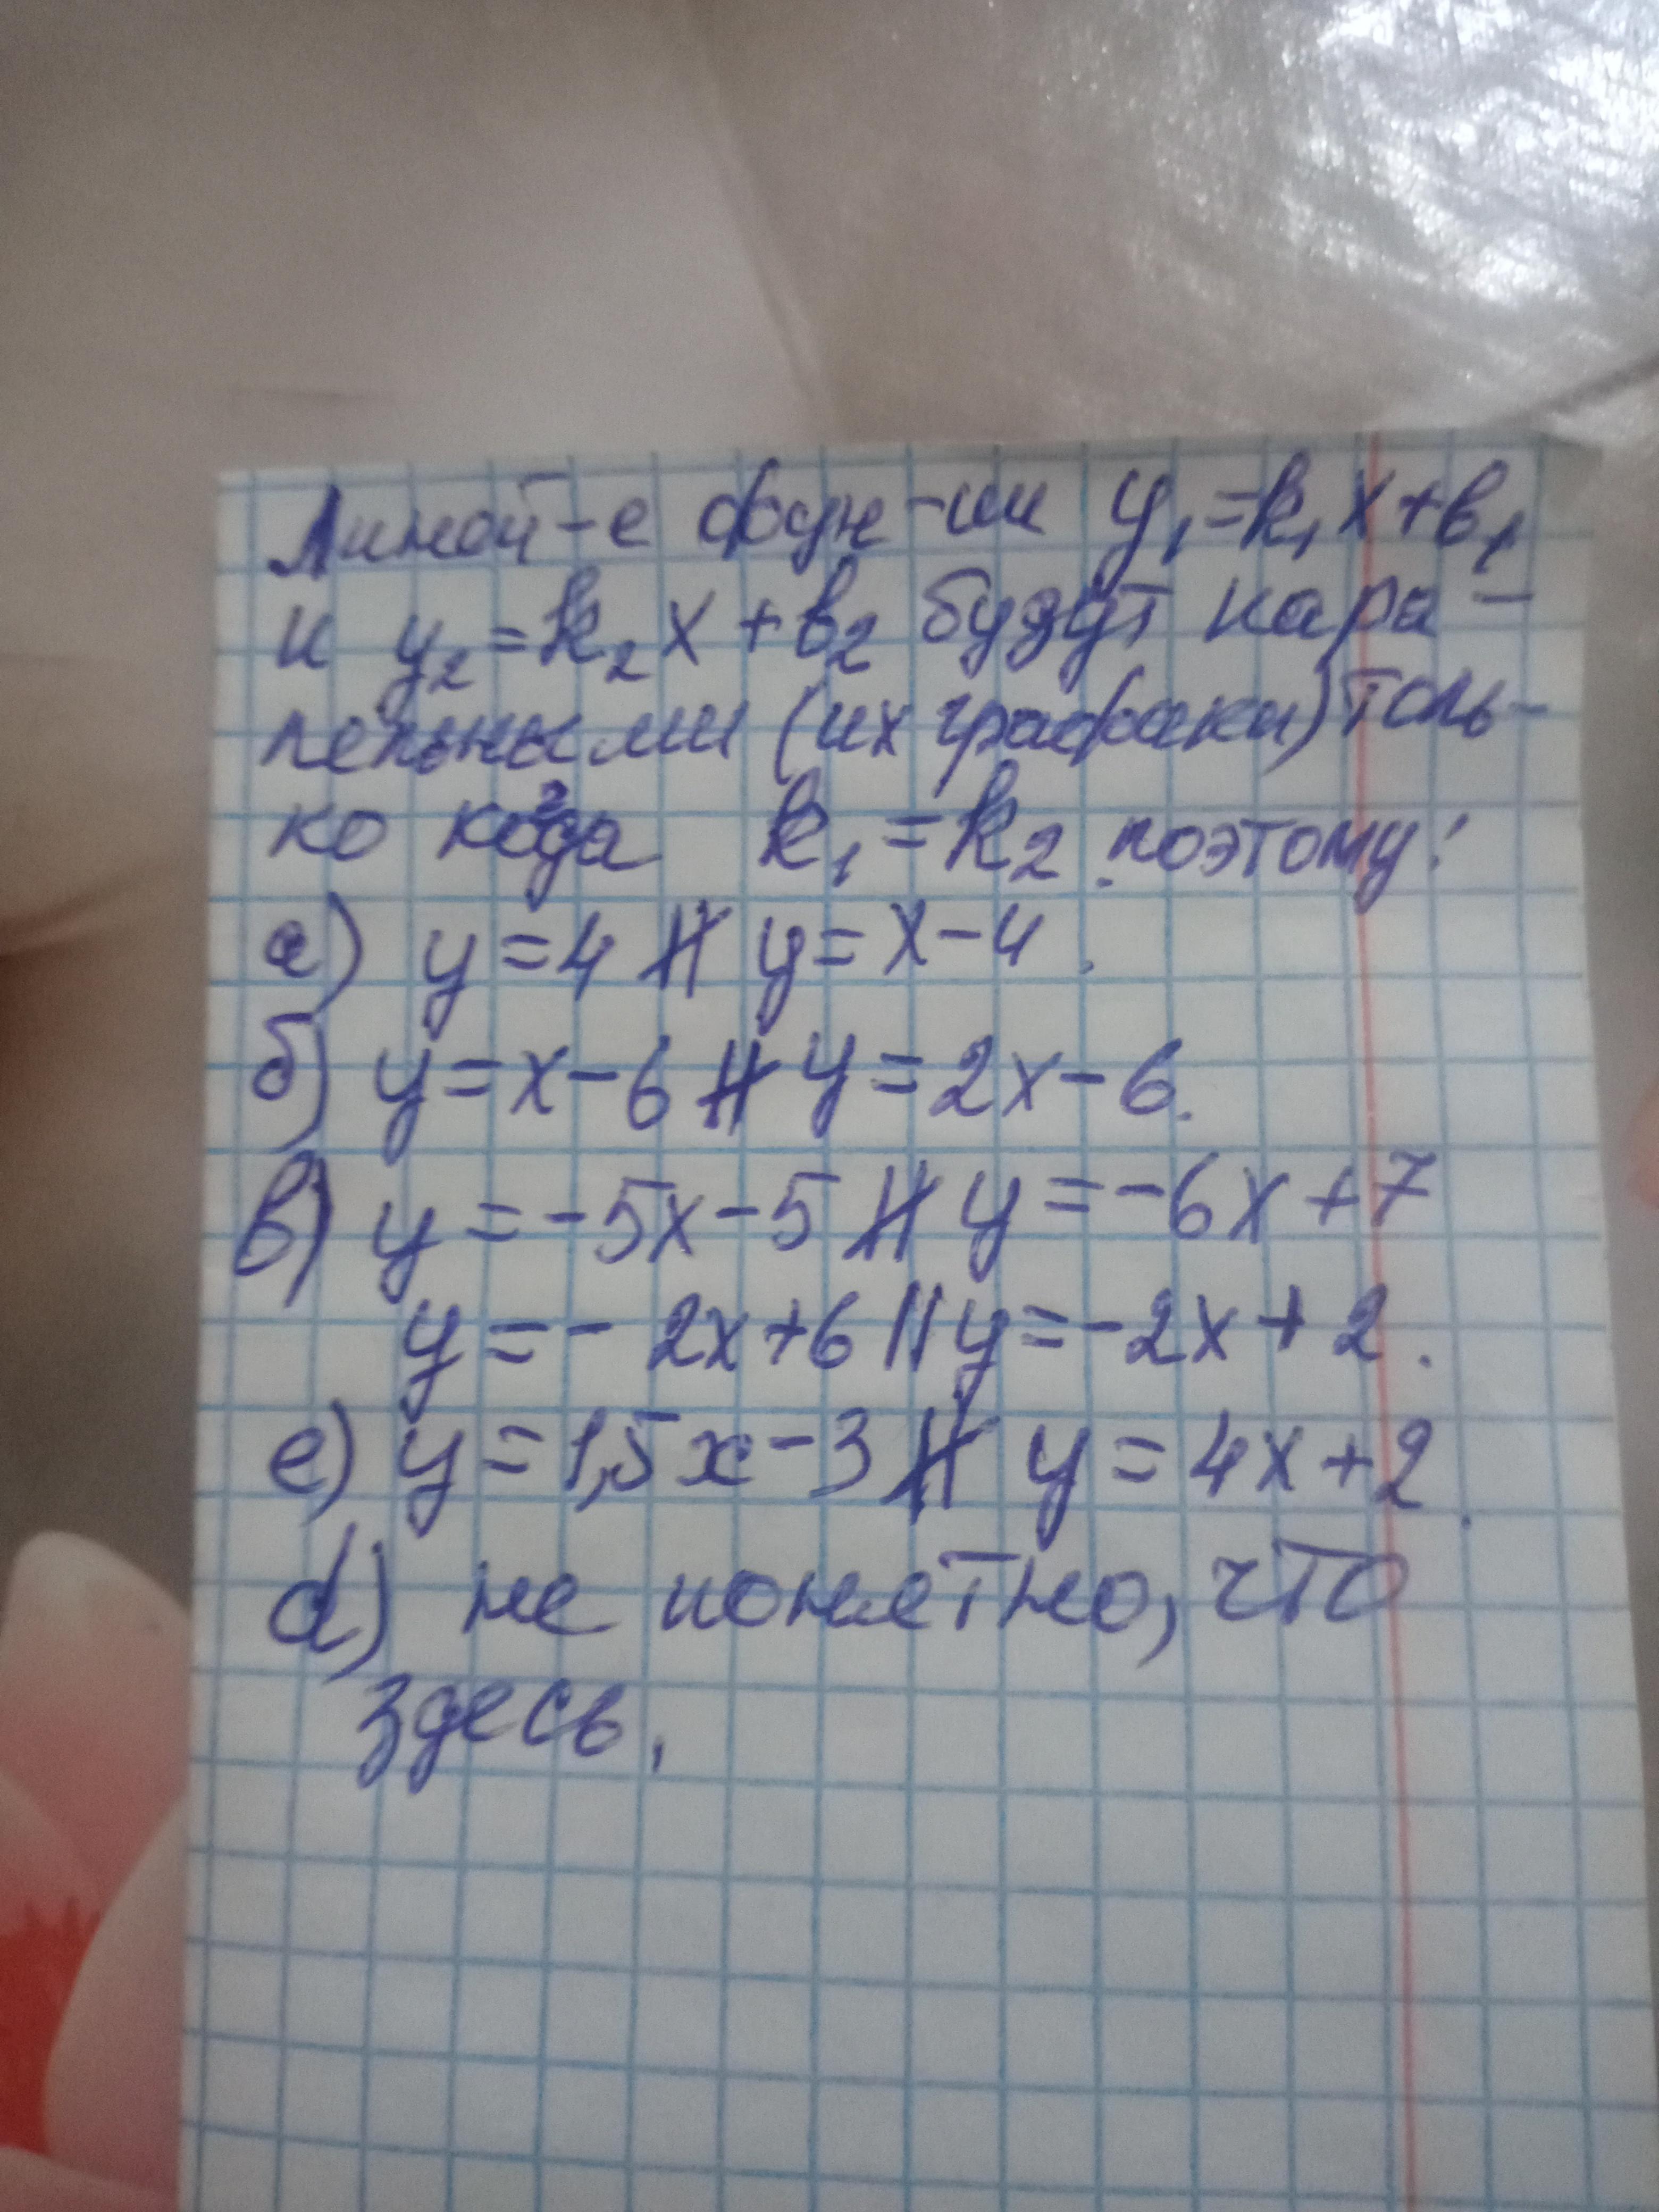 Линей-е фун-ции y₁=k₁x+b₁
и y₂=k₂x+b₂ будут пара-
лельными (их графики) толь-
ко когда k₁=k₂ поэтому:
а) y=4 ∦ y=x-4.
б) y=x-6 ∦ y=2x-6.
в) y=-5x-5 ∦ y=-6x+7
y=-2x+6 || y=-2x+2.
е) y=1,5x-3 ∦ y=4x+2.
d) не понятно, что
здесь.